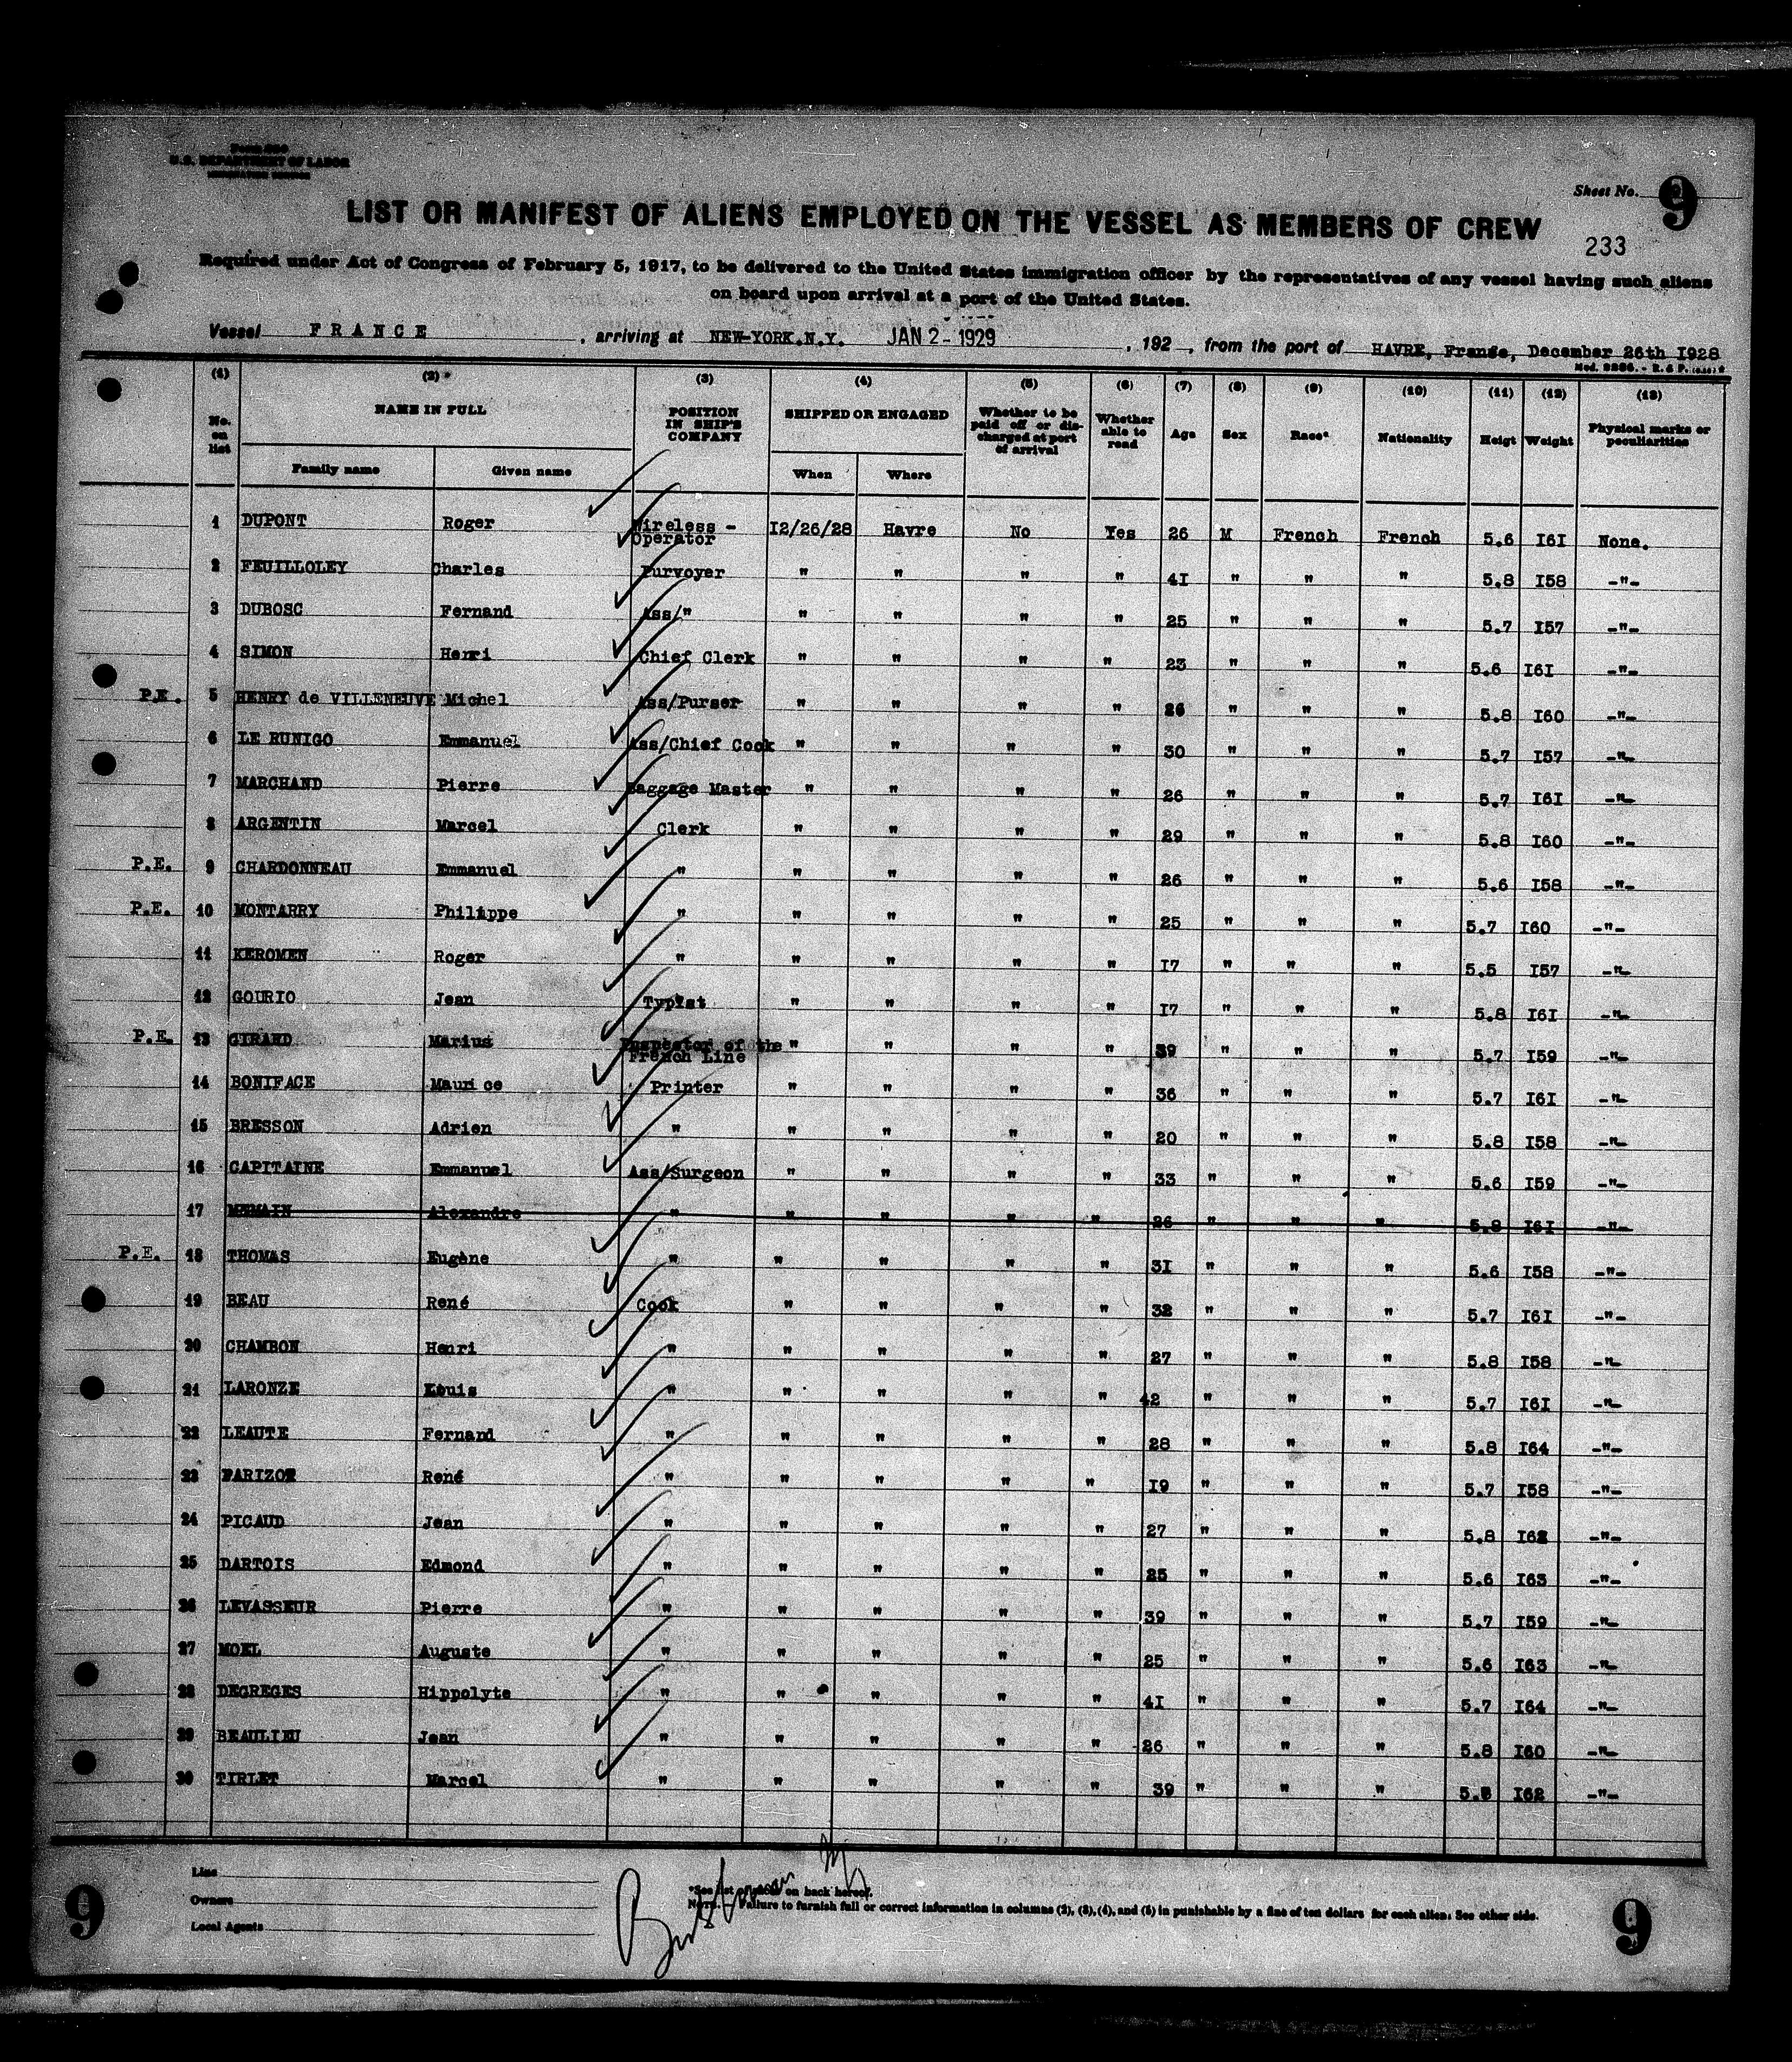 Form 680
U.S. DEPARTMENT OF LABOR
IMMIGRATION SERVICE
Sheet No. 9
LIST OR MANIFEST OF ALIENS EMPLOYED ON THE VESSEL AS MEMBERS OF CREW
233
Required under Act of Congress of February 5, 1917, to be delivered to the United States immigration officer by the representatives of any vessel having such aliens
on board upon arrival at a port of the United States.
Vessel FRANCE, arriving at NEW-YORK.N.Y. JAN 2 - 1929, 192 , from the port of HAVRE, France, December 26th I928
(1) (2) * (3) (4) (5) (6) (7) (8) (9) (10) (11) (12) (13)
No. on list NAME IN FULL Family name Given name POSITION IN SHIP'S COMPANY SHIPPED OR ENGAGED When Where Whether to be paid off or discharged at port of arrival Whether able to read Age Sex Race* Nationality Heigt Weight Physical marks or peculiarities
1 DUPONT Roger Wireless - Operator I2/26/28 Havre No Yes 26 M French French 5.6 I6I None.
2 FEUILLOLEY Charles Purvoyer " " " " 4I " " " 5.8 I58 -"-
3 DUBOSC Fernand Ass/" " " " " 25 " " " 5.7 I57 -"-
4 SIMON Henri Chief Clerk " " " " 23 " " " 5.6 I6I -"-
P.E. 5 HENRY de VILLENEUVE Michel Ass/Purser " " " " 26 " " " 5.8 I60 -"-
6 LE RUNIGO Emmanuel Ass/Chief Cook " " " " 30 " " " 5.7 I57 -"-
7 MARCHAND Pierre Baggage Master " " " " 26 " " " 5.7 I6I -"-
8 ARGENTIN Marcel Clerk " " " " 29 " " " 5.8 I60 -"-
P.E. 9 CHARDONNEAU Emmanuel " " " " " 26 " " " 5.6 I58 -"-
P.E. 10 MONTARRY Philippe " " " " " 25 " " " 5.7 I60 -"-
11 KEROMEN Roger " " " " " I7 " " " 5.5 I57 -"-
12 GOURIO Jean Typist " " " " I7 " " " 5.8 I6I -"-
P.E. 13 GIRARD Marius Inspector of the French Line " " " " 39 " " " 5.7 I59 -"-
14 BONIFACE Maurice Printer " " " " 36 " " " 5.7 I6I -"-
15 BRESSON Adrien " " " " " 20 " " " 5.8 I58 -"-
16 CAPITAINE Emmanuel Ass/Surgeon " " " " 33 " " " 5.6 I59 -"-
17 MEMAIN Alexandre " " " " " 26 " " " 5.8 I6I -"-
P.E. 18 THOMAS Eugène " " " " " 3I " " " 5.6 I58 -"-
19 BEAU René Cook " " " " 32 " " " 5.7 I6I -"-
20 CHAMBON Henri " " " " " 27 " " " 5.8 I58 -"-
21 LARONZE Louis " " " " " 42 " " " 5.7 I6I -"-
22 LEAUTE Fernand " " " " " 28 " " " 5.8 I64 -"-
23 FARIZOT René " " " " " I9 " " " 5.7 I58 -"-
24 PICAUD Jean " " " " " 27 " " " 5.8 I62 -"-
25 DARTOIS Edmond " " " " " 25 " " " 5.6 I63 -"-
26 LEVASSEUR Pierre " " " " " 39 " " " 5.7 I59 -"-
27 MOEL Auguste " " " " " 25 " " " 5.6 I63 -"-
28 DEGREGES Hippolyte " " " " " 4I " " " 5.7 I64 -"-
29 BEAULIEU Jean " " " " " 26 " " " 5.8 I60 -"-
30 TIRLET Marcel " " " " " 39 " " " I62 -"-
Line
Owners
Local Agents
*See list of races on back hereof.
NOTE.— Failure to furnish full or correct information in columns (2), (3), (4), and (5) in punishable by a fine of ten dollars for each alien. See other side.
9 9